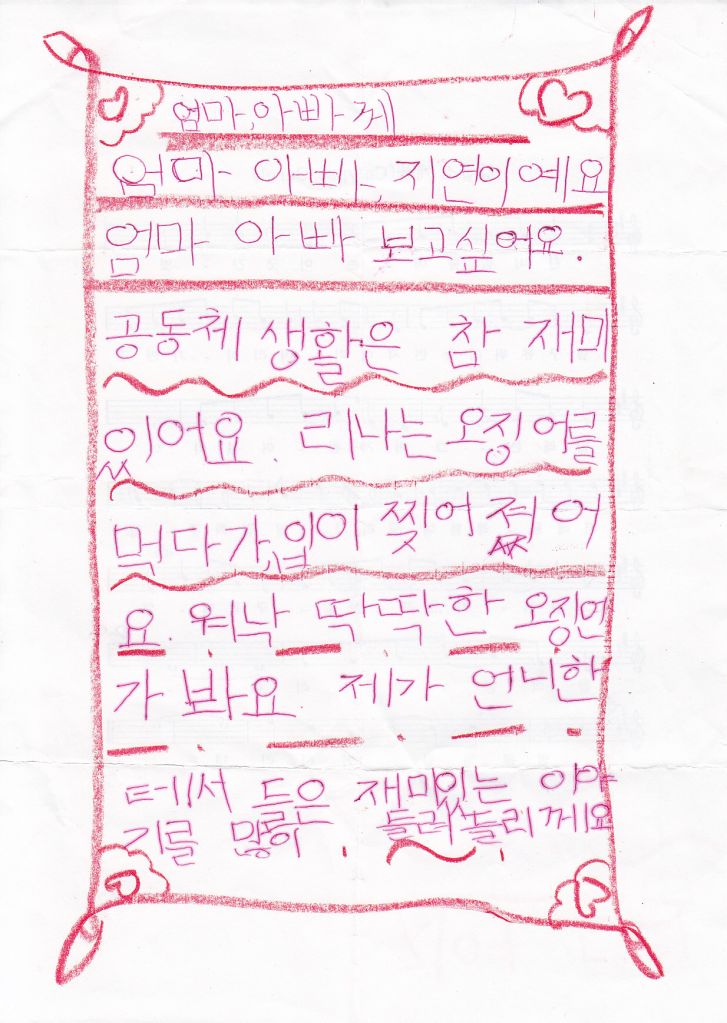 엄마, 아빠께
엄마 아빠, 지연이예요
엄마 아빠 보고싶어요.
공동체 생활은 참 재미
있어요. 리나는 오징어를
먹다가, 입이 찢어졌어
요. 워낙 딱딱한 오징언
가 봐요 제가 언니한
테서 들은 재미있는 이야
기를 많이 들려 들리께요